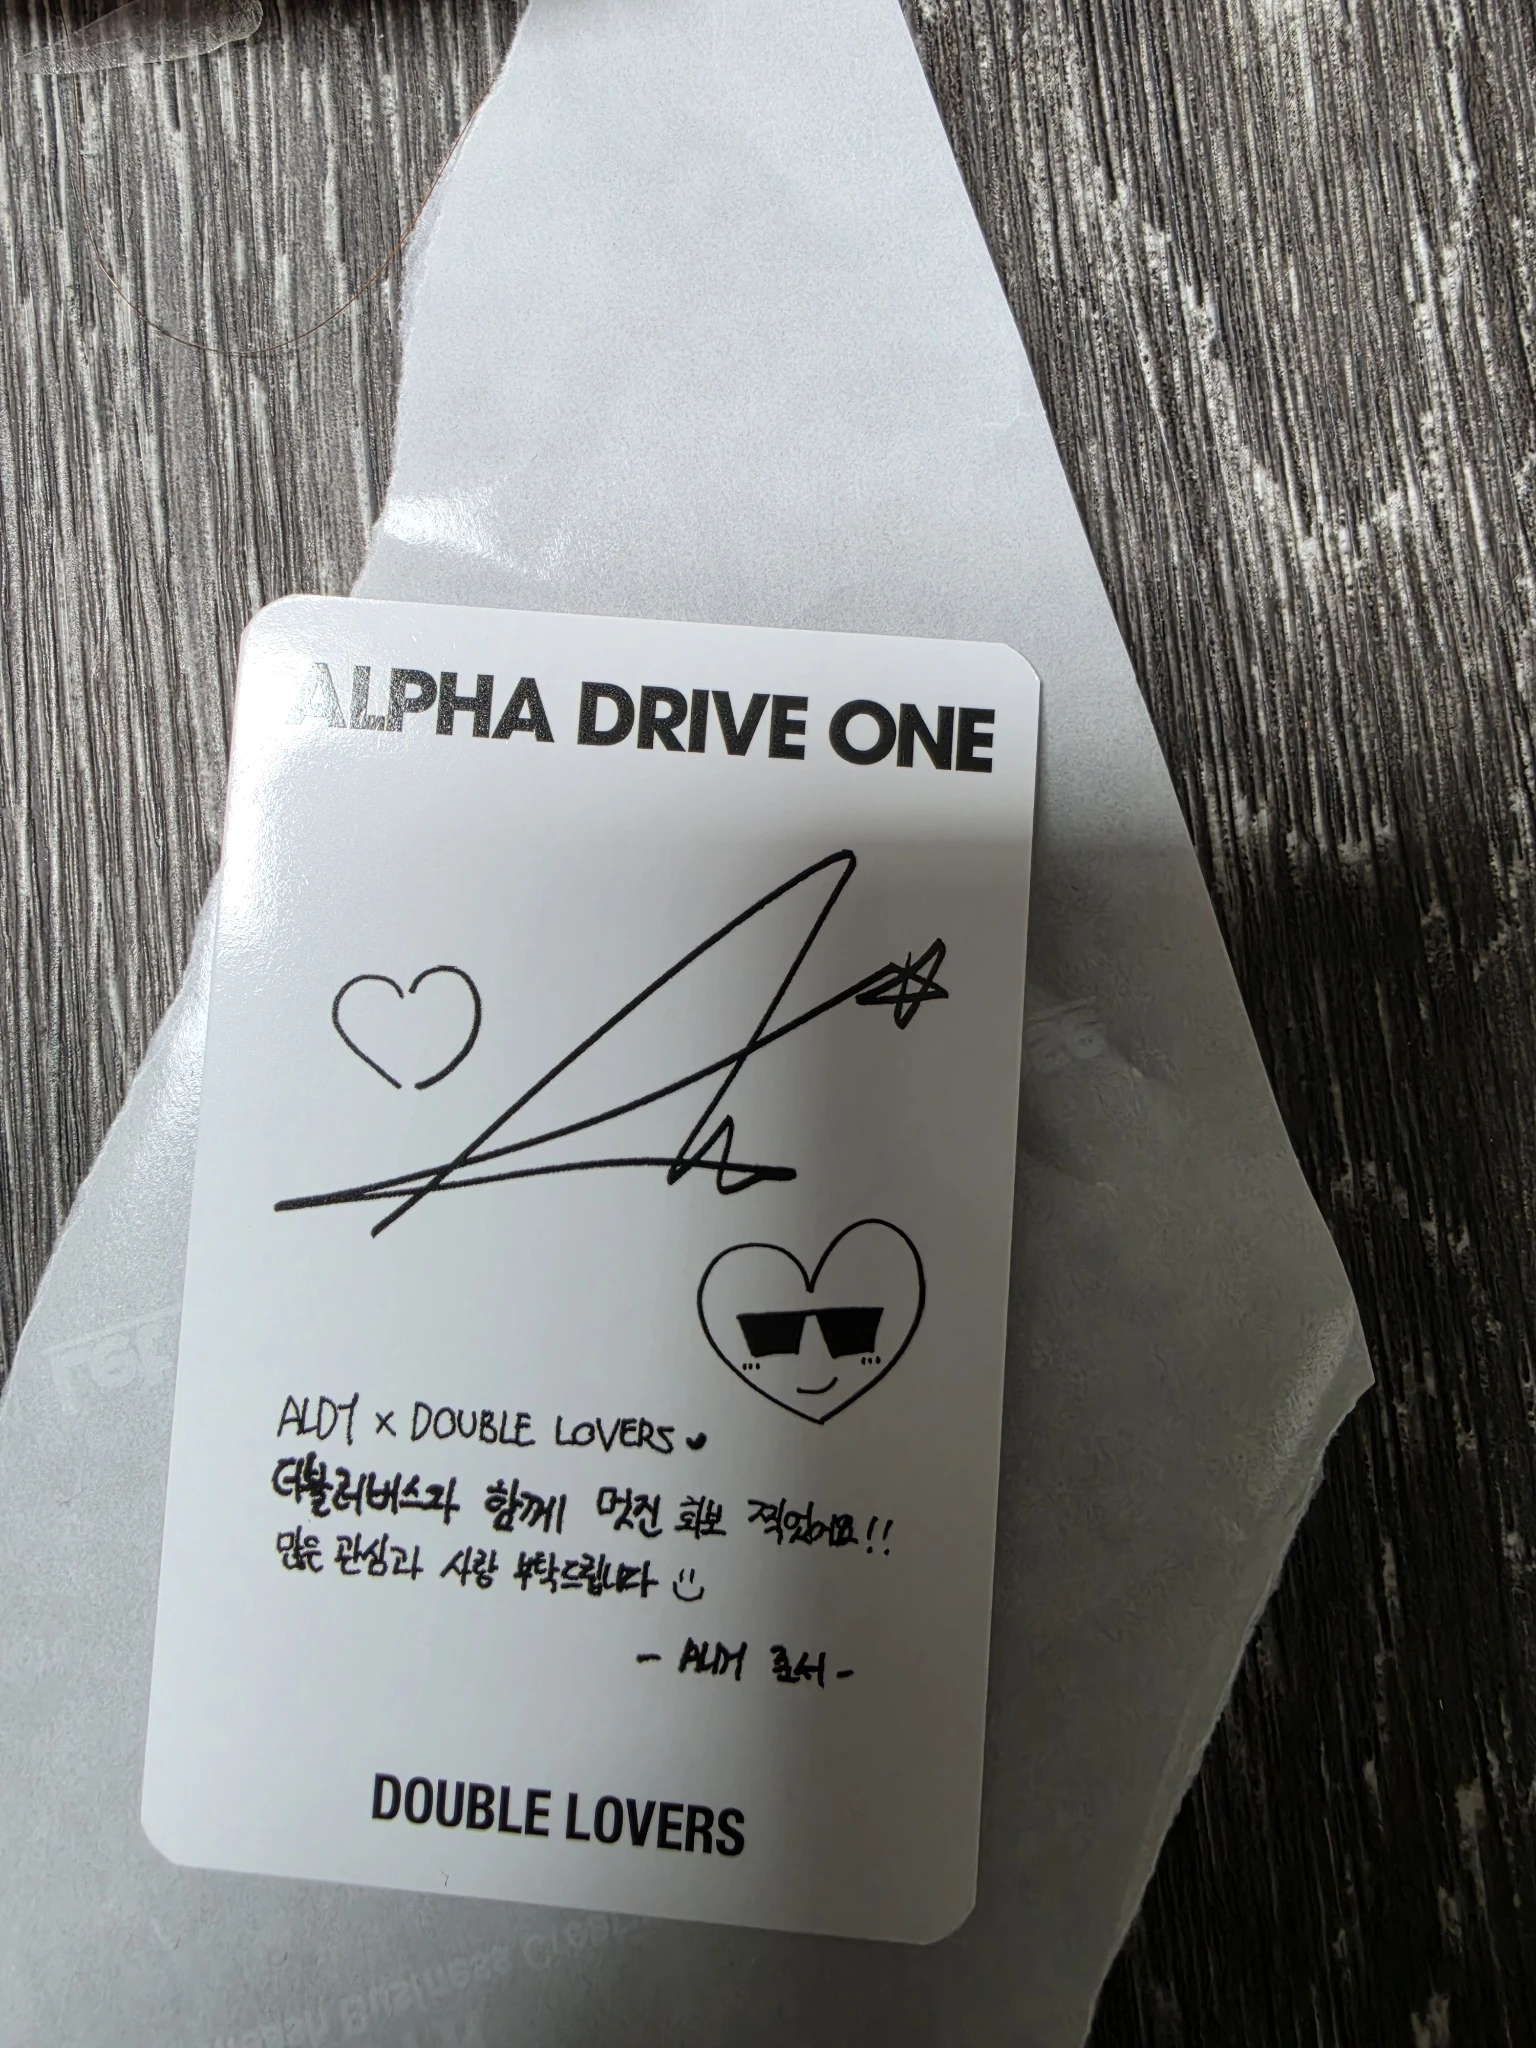 ALPHA DRIVE ONE
ALD1 x DOUBLE LOVERS
더블러버스와 함께 멋진 화보 찍었어요!!
많은 관심과 사랑 부탁드립니다
- ALD1 준서 -
DOUBLE LOVERS